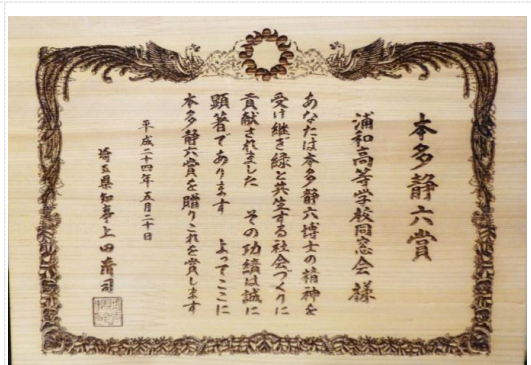 本多静六賞
浦和高等学校同窓会 様
あなたは本多静六博士の精神を
受け継ぎ緑と共生する社会づくりに
貢献されました　その功績は誠に
顕著であります　よってここに
本多静六賞を贈りこれを賞します
平成二十四年五月二十日
埼玉県知事上田清司